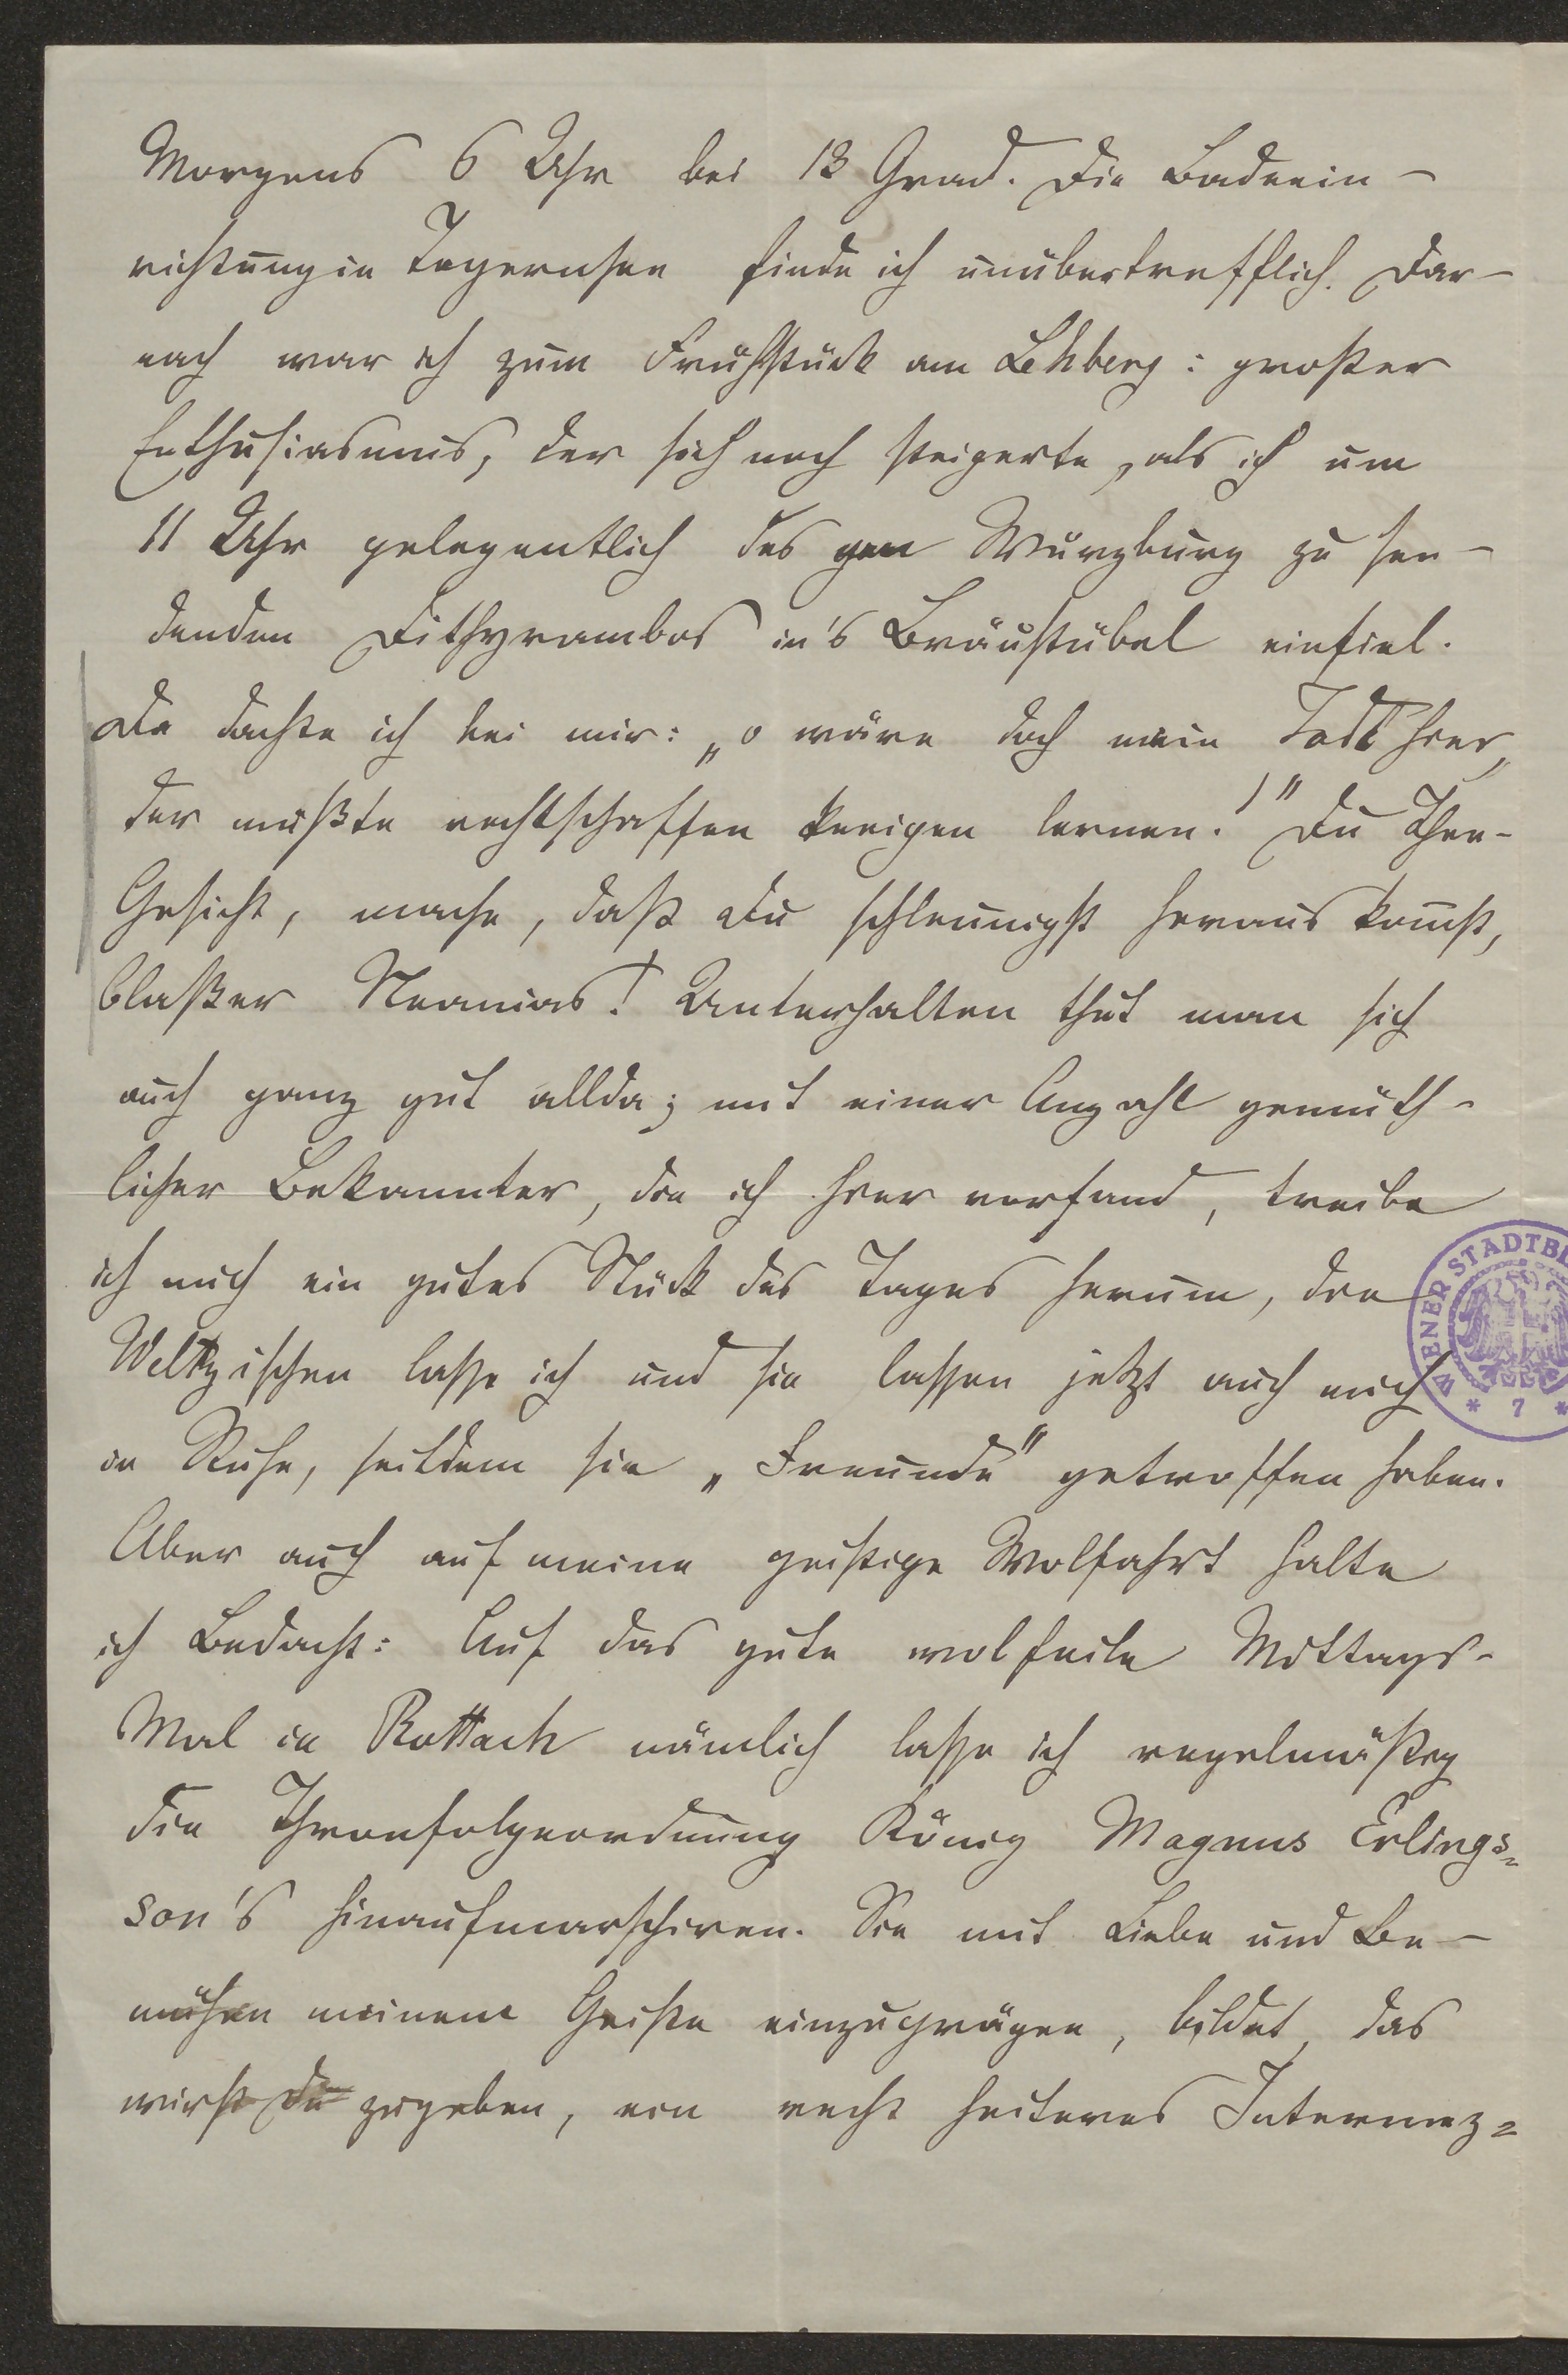 Morgens 6 Uhr bei 13 Grad. Die Badeein-
richtung in Tegernsee finde ich unübertrefflich. Dar-
nach war ich zum Frühstück am Lehberg: großer
Enthusiasmus, der sich noch steigerte, als ich um
11 Uhr gelegentlich des gen Würzburg zu sen-
denden Dithyrambos in's Bräustübel einfiel.
Da dachte ich bei mir: „o wäre doch mein Todt hier,
der müßte rechtschaffen kneipen lernen!" Du Thee-
Gesicht, mache, daß Du schleunigst heraus kommst,
blaßer Neanias! Unterhalten thut man sich
auch ganz gut allda; mit einer Anzahl gemüth-
licher Bekannter, die ich hier vorfand, treibe
ich mich ein gutes Stück des Tages herum, die
Weltzischen lasse ich und sie lassen jetzt auch mich
in Ruhe, seitdem sie „Freunde" getroffen haben.
Aber auch auf meine geistige Wolfahrt halte
ich Bedacht: Auf das gute wolfeile Mittags-
Mal in Rottach nämlich lasse ich regelmäßig
die Thronfolgeordnung König Magnus Erlings=
son's hinaufmarschiren. Sie mit Liebe und Be-
mühen meinem Geiste einzuprägen, bildet, das
wirst Du zugeben, ein recht heiteres Intermez=
WIENER STADTBI
* 7 *